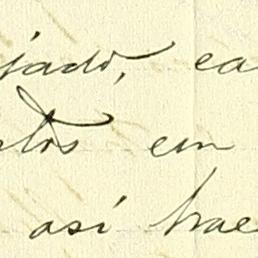 jado, ca
tos con
así trae